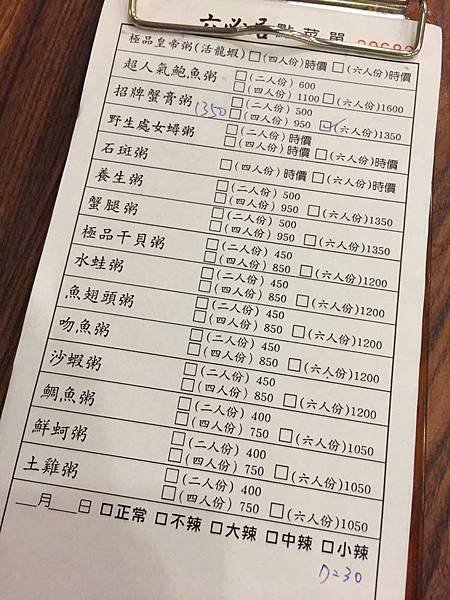 點菜單
極品皇帝粥(活龍蝦) □(四人份)時價 □(六人份)時價
超人氣鮑魚粥 □(二人份) 600
□(四人份) 1100 □(六人份)1600
招牌蟹膏粥 □(二人份) 500
1350 □(四人份) 950 ☑(六人份)1350
野生處女蟳粥 □(二人份)時價
□(四人份)時價 □(六人份)時價
石斑粥 □(四人份)時價 □(六人份)時價
養生粥 □(二人份) 500
□(四人份) 950 □(六人份)1350
蟹腿粥 □(二人份) 500
□(四人份) 950 □(六人份)1350
極品干貝粥 □(二人份) 450
□(四人份) 850 □(六人份)1200
水蛙粥 □(二人份) 450
□(四人份) 850 □(六人份)1200
魚翅頭粥 □(二人份) 450
□(四人份) 850 □(六人份)1200
吻魚粥 □(二人份) 450
□(四人份) 850 □(六人份)1200
沙蝦粥 □(二人份) 450
□(四人份) 850 □(六人份)1200
鯛魚粥 □(二人份) 400
□(四人份) 750 □(六人份)1050
鮮蚵粥 □(二人份) 400
□(四人份) 750 □(六人份)1050
土雞粥 □(二人份) 400
□(四人份) 750 □(六人份)1050
__月__日 □正常 □不辣 □大辣 □中辣 □小辣
D=30